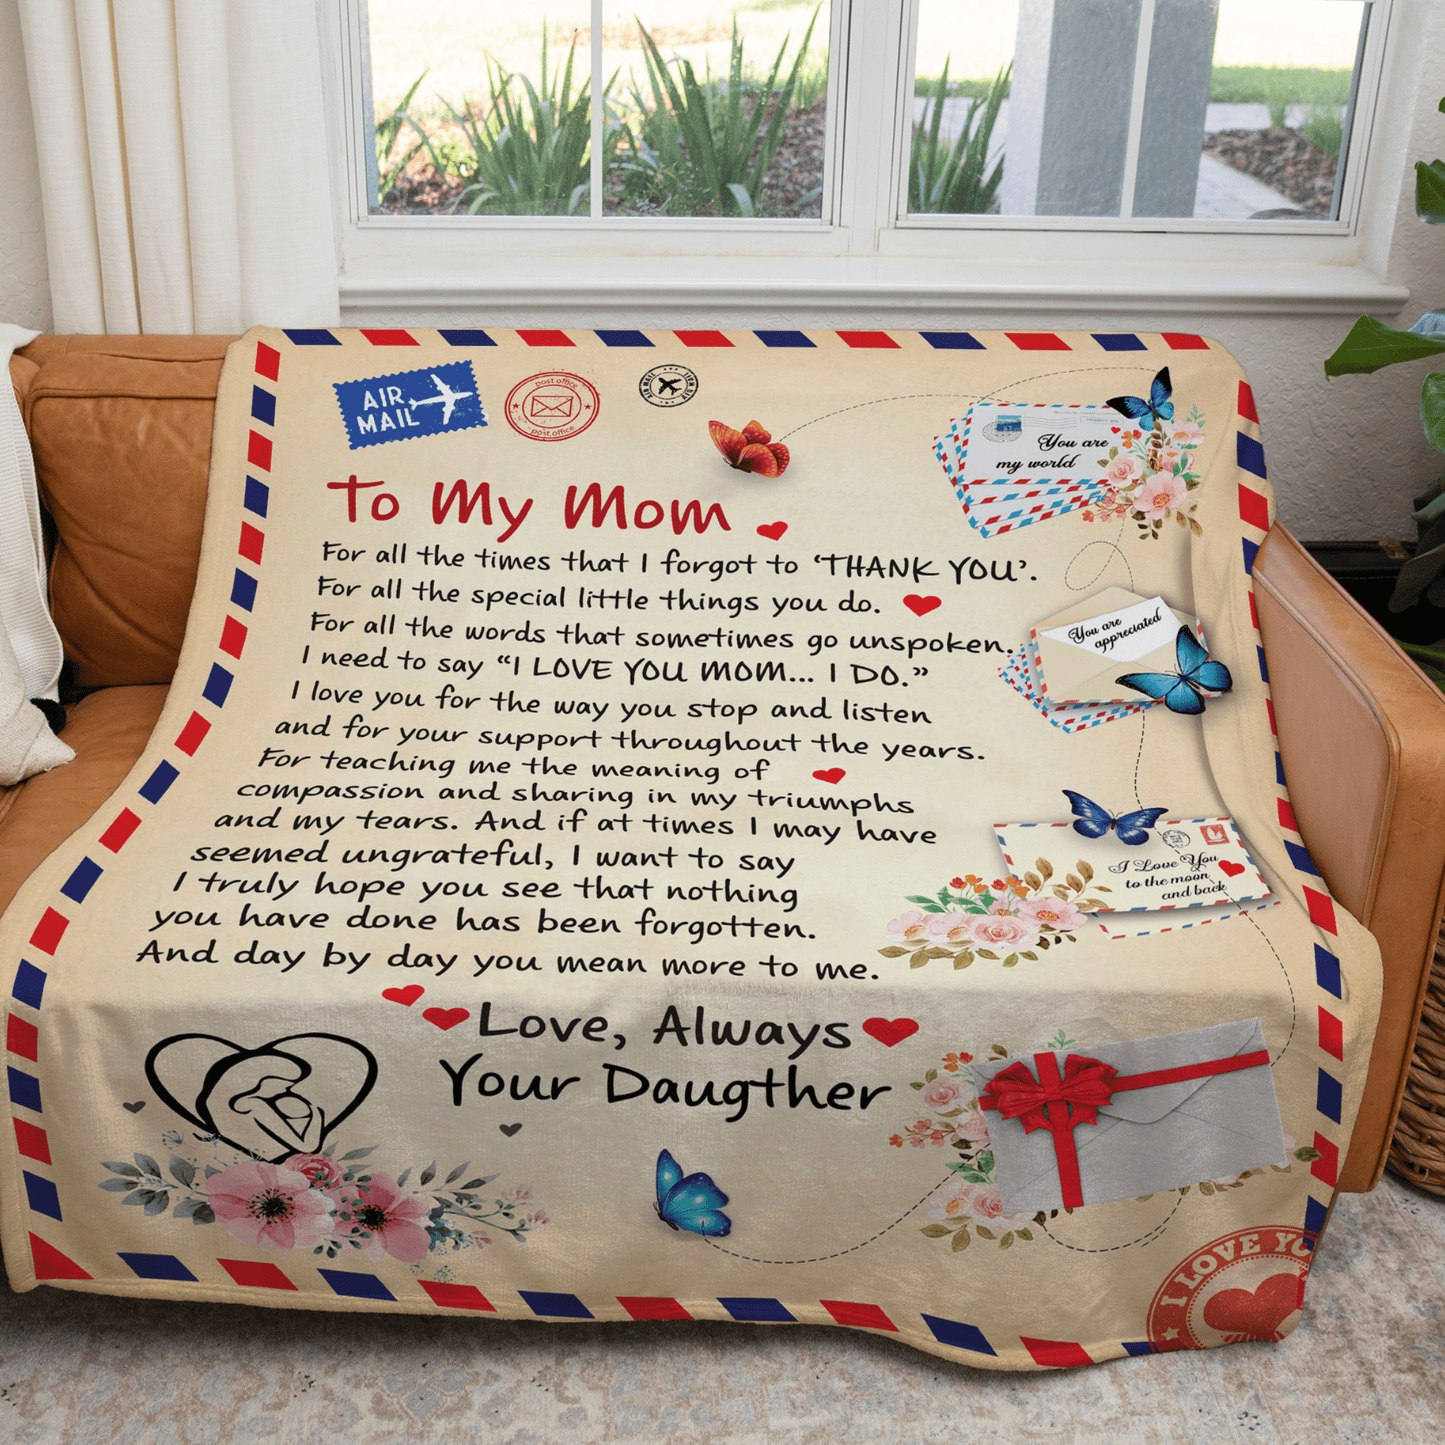 AIR
MAIL
post office
post office
AIR MAIL
AIR MAIL
You are
my world
To My Mom
For all the times that I forgot to ‘THANK YOU’.
For all the special little things you do.
For all the words that sometimes go unspoken.
I need to say “I LOVE YOU MOM... I DO.”
I love you for the way you stop and listen
and for your support throughout the years.
For teaching me the meaning of
compassion and sharing in my triumphs
and my tears. And if at times I may have
seemed ungrateful, I want to say
I truly hope you see that nothing
you have done has been forgotten.
And day by day you mean more to me.
Love, Always
Your Daugther
You are
appreciated
I Love You
to the moon
and back
I LOVE YO